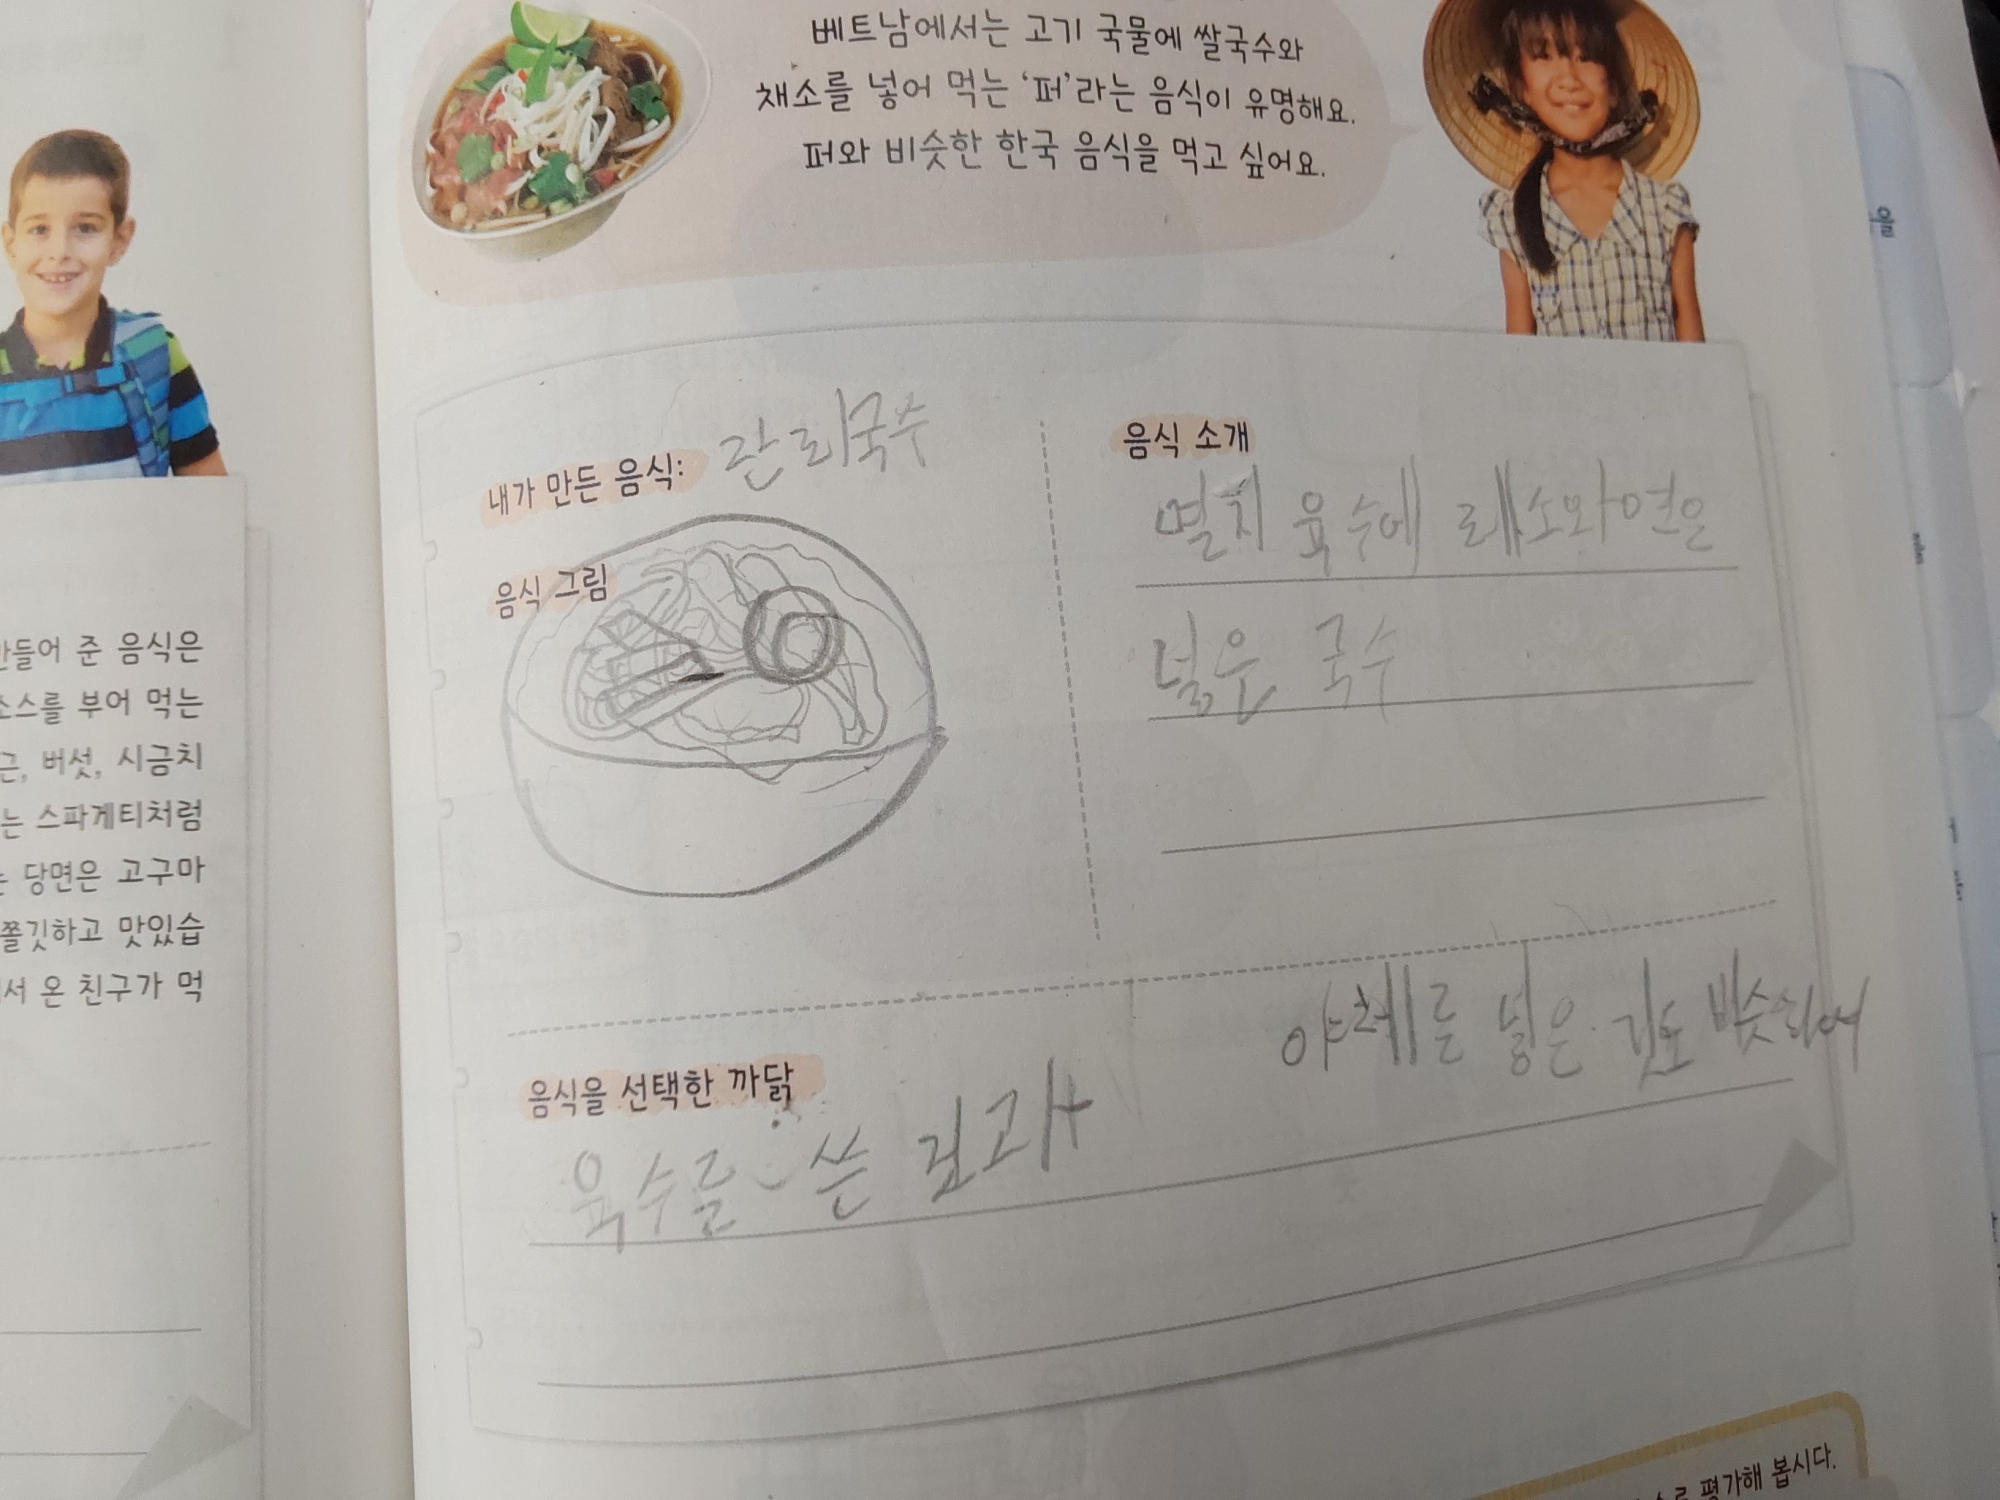 베트남에서는 고기 국물에 쌀국수와
채소를 넣어 먹는 ‘퍼’라는 음식이 유명해요.
퍼와 비슷한 한국 음식을 먹고 싶어요.
만들어 준 음식은
소스를 부어 먹는
근, 버섯, 시금치
는 스파게티처럼
는 당면은 고구마
쫄깃하고 맛있습
서 온 친구가 먹
내가 만든 음식: 잔치국수
음식 그림
음식 소개
멸치 육수에 채소와 면은
넣은 국수
음식을 선택한 까닭
육수를 쓴 것과
야체를 넣은 것도 비슷하여
평가해 봅시다.